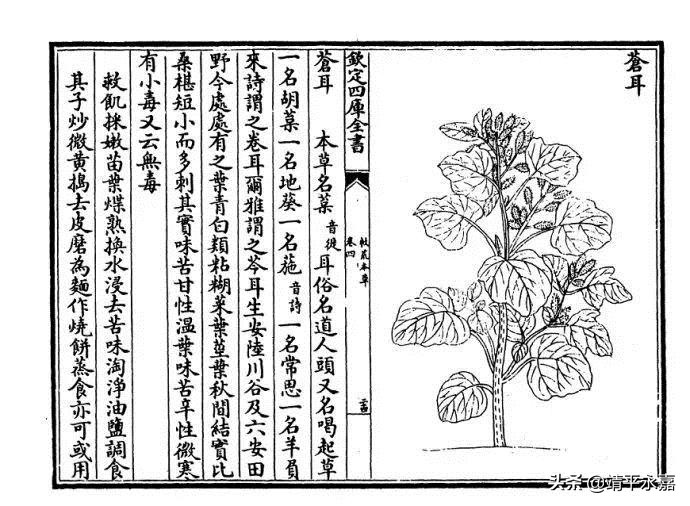 蒼耳
欽定四庫全書
救荒本草
卷四
蒼耳　本草名葈音徙耳俗名道人頭又名喝起草
一名胡葈一名地葵一名葹音詩一名常思一名羊負
來詩謂之卷耳爾雅謂之苓耳生安陸川谷及六安田
野今處處有之葉青白類粘糊菜葉莖葉秋間結實比
桑椹短小而多刺其實味苦甘性溫葉味苦辛性微寒
有小毒又云無毒
救飢採嫩苗葉煠熟換水浸去苦味淘淨油鹽調食
其子炒微黃搗去皮磨為麵作燒餅蒸食亦可或用
头条 @靖平永嘉